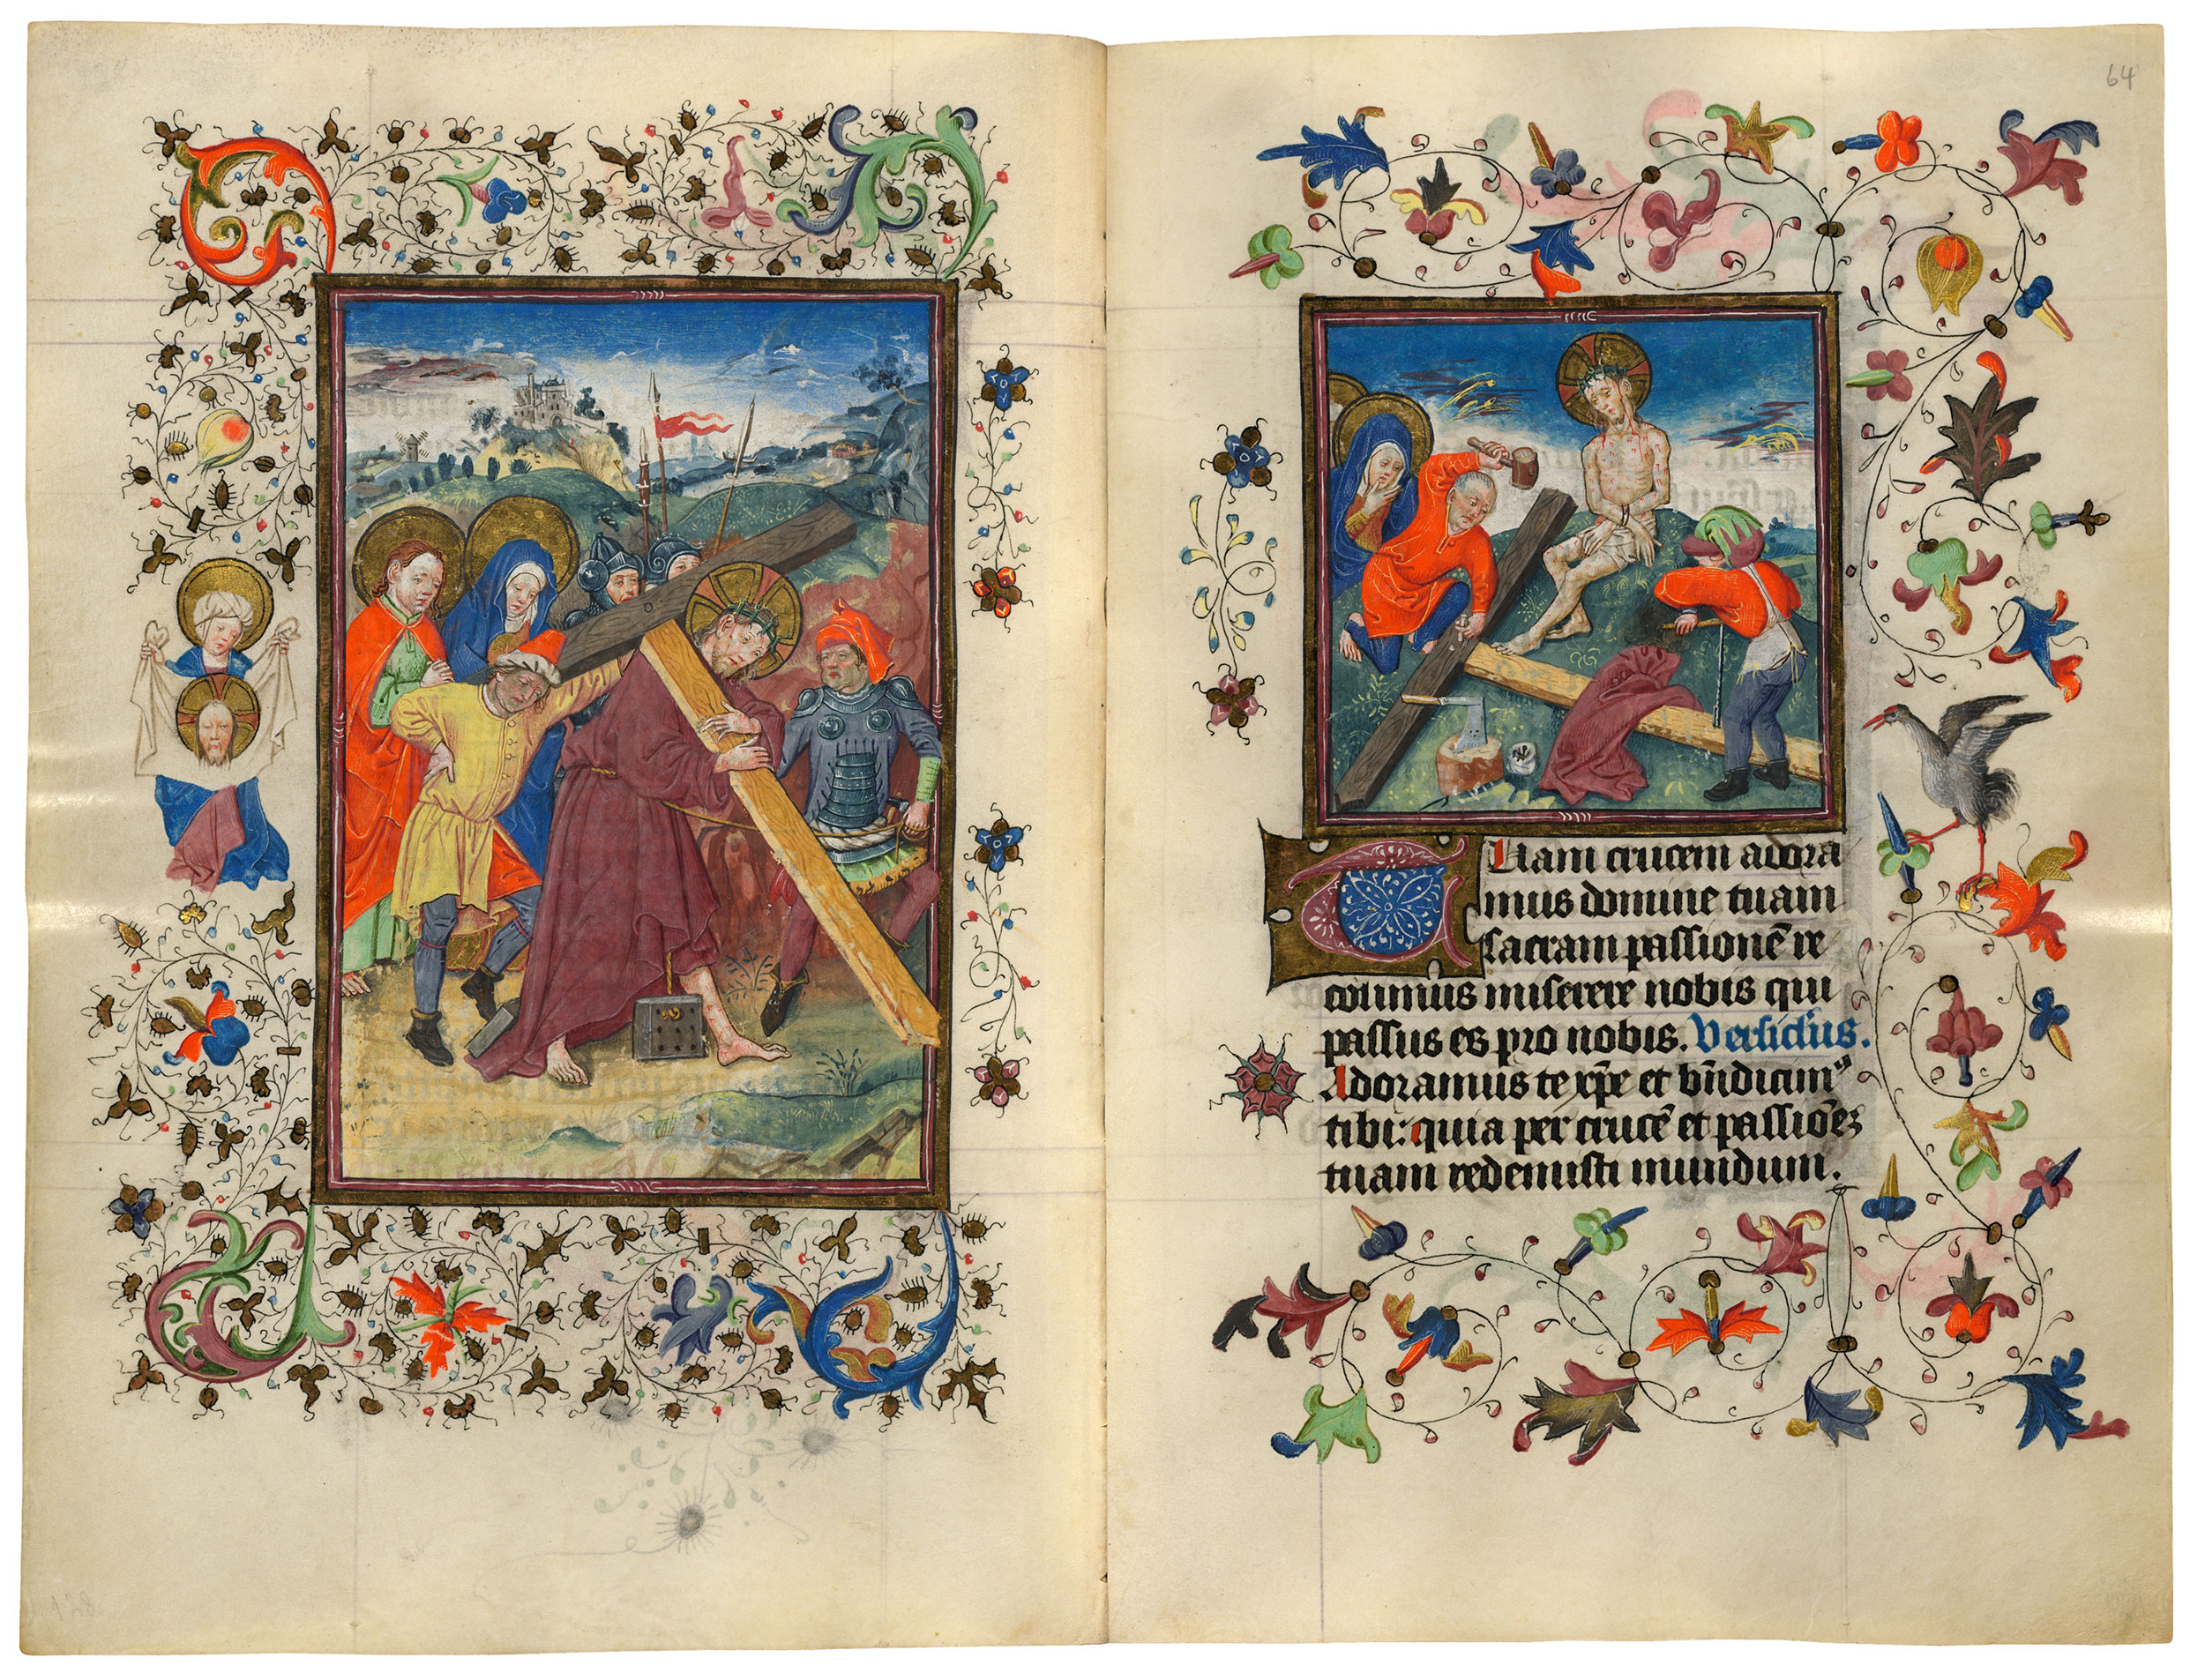 64
Tuam crucem adora
mus domine tuam
sacram passionē re
colimus miserere nobis qui
passus es pro nobis. Versiculus.
Adoramus te xp̄e et bn̄dicim⁹
tibi: quia per crucē et passionē
tuam redemisti mundum.